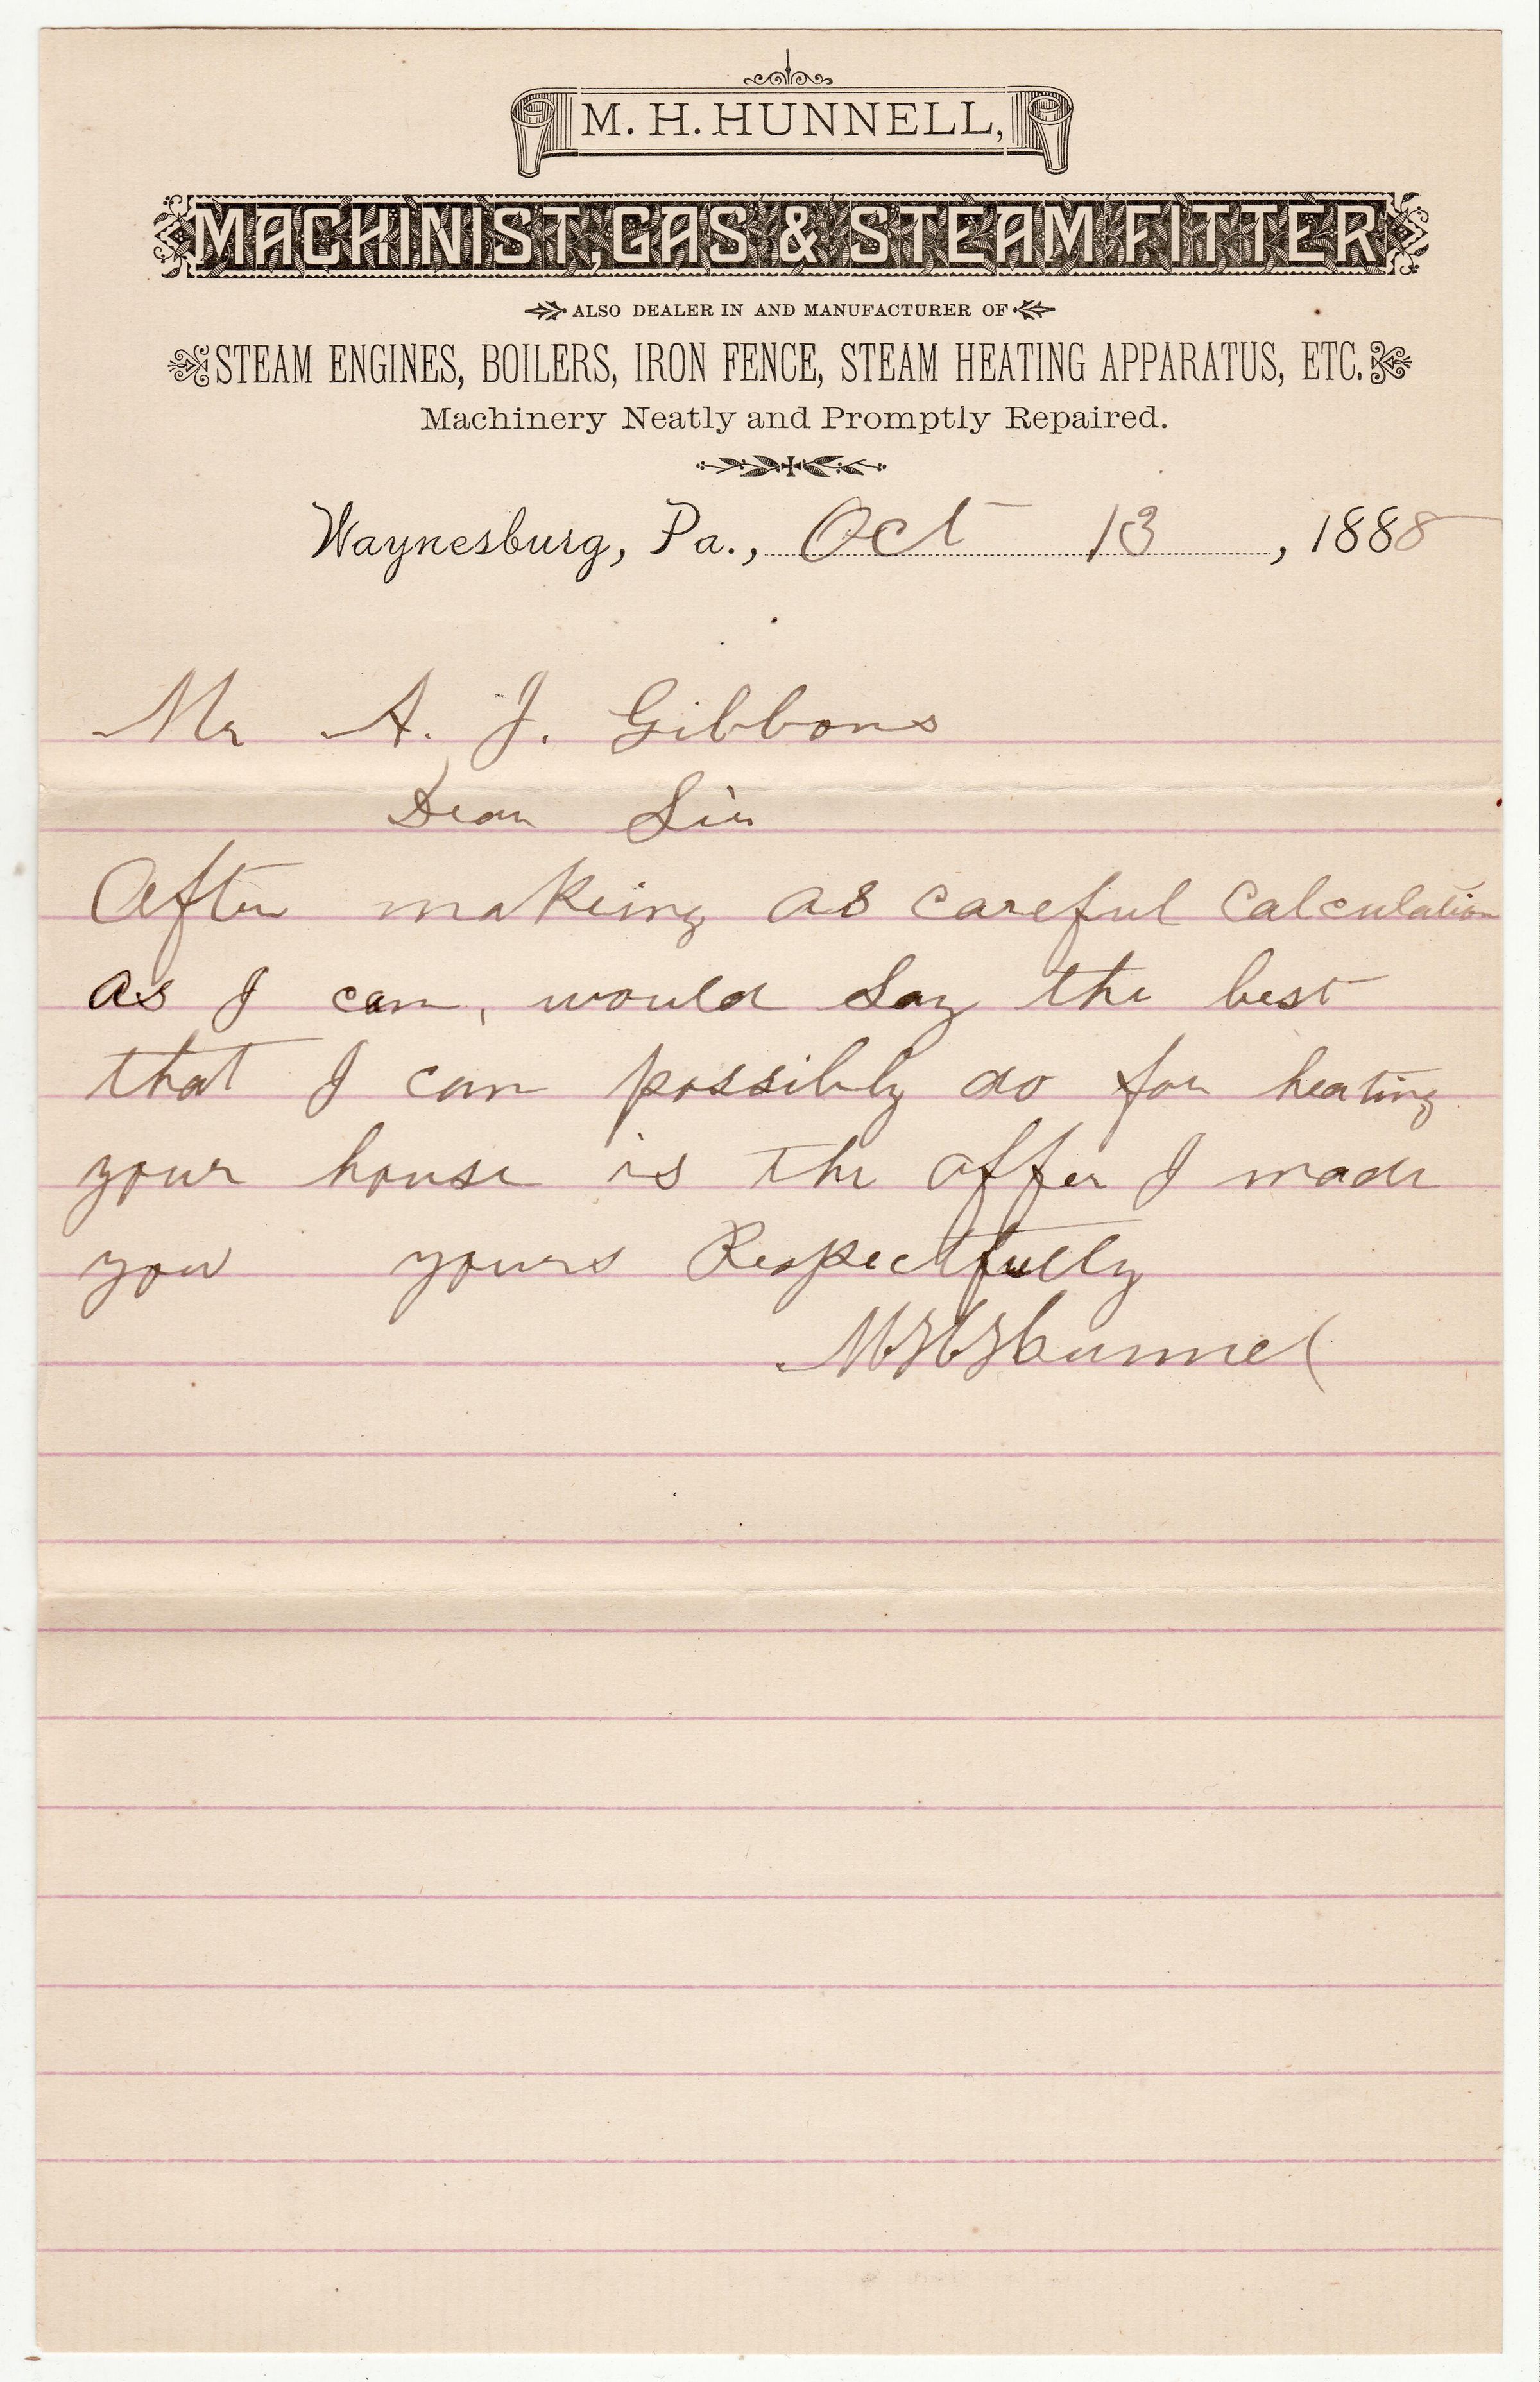 M. H. HUNNELL,
MACHINIST, GAS & STEAM FITTER
ALSO DEALER IN AND MANUFACTURER OF
STEAM ENGINES, BOILERS, IRON FENCE, STEAM HEATING APPARATUS, ETC.
Machinery Neatly and Promptly Repaired.
Waynesburg, Pa., Oct 13, 1888
Mr A. J. Gibbons
Dear Sir
After making as careful Calculation
as I can, would Say the best
that I can possibly do for heating
your house is the offer I made
you yours Respectfully
M H Hunnel